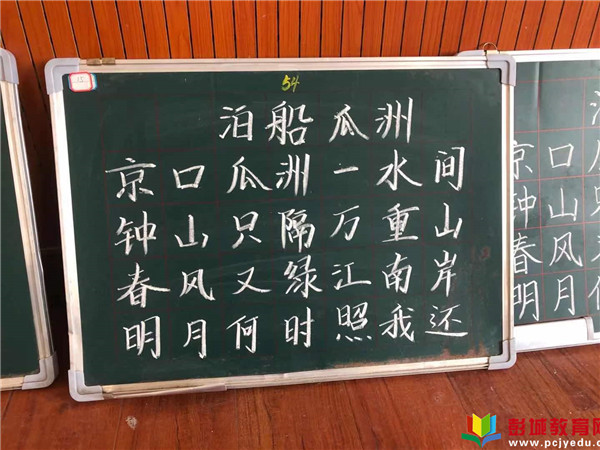 54
泊船瓜洲
京口瓜洲一水间
钟山只隔万重山
春风又绿江南岸
明月何时照我还
京口
钟山
春风
明月何
彭城教育网
www.pcjyedu.com